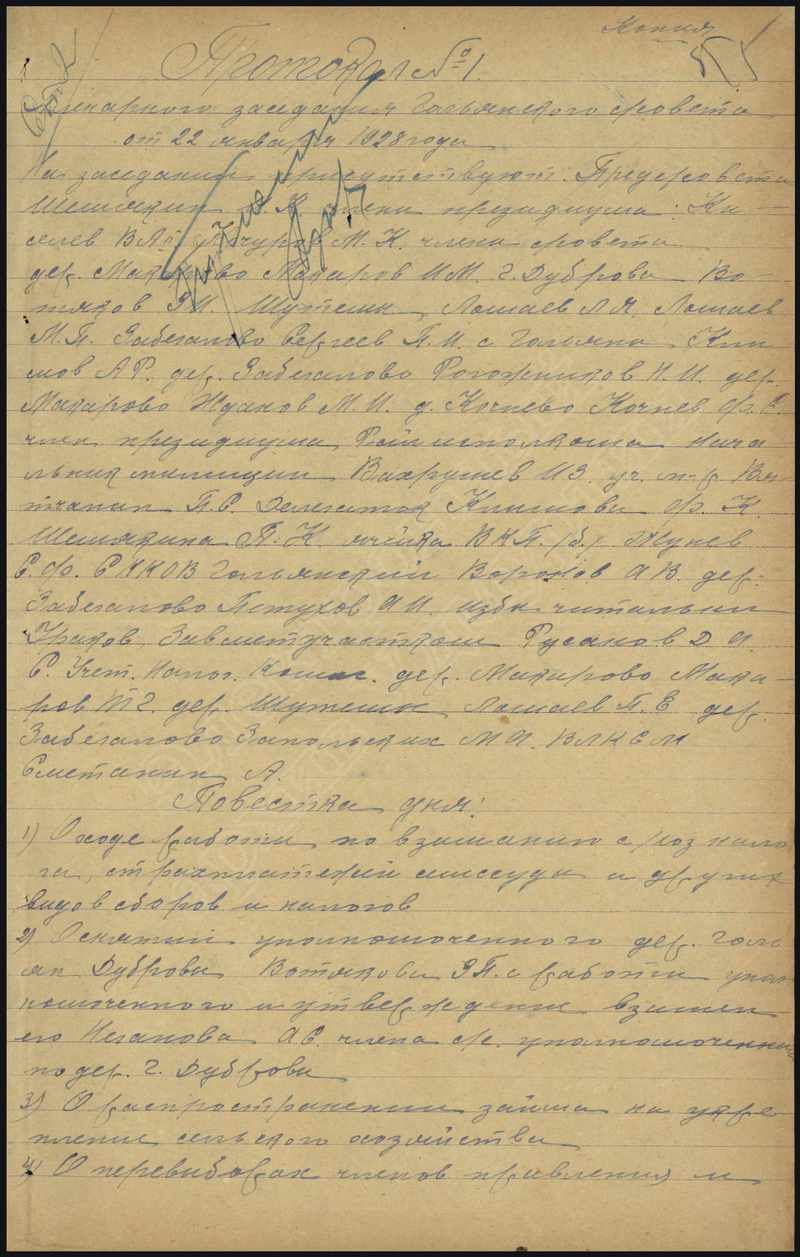 Копия
Протокол № 1.
Пленарного заседания Гольянского с/совета
от 22 января 1928 года
На заседании присутствуют: Предс/совета
Шемякин члены президиума: Ки
селев В.А. Качуров М. К. члены с/совета
дер. Макарово Макаров И.М. Г. Дуброва Во-
тяков Я.И. Шутешк Лошаев Л.Я. Лошаев
М.П. Забегалово Сергеев П.И. с Гольяны Кли
мов А.Р. дер. Забегалово Рогожников Н.И. дер.
Макарово Жданов М.И. д. Кочнево Кочнев Ф.
член президиума Райисполкома нача
льник милиции Вахрушев И.З. уч. м-р Вя
тчанин П.С. Делегаток Климова Ф. К.
Шемякина П. К. ячейка ВКП (б) Жунев
С.Ф. СККОВ Гольянский Воронов А.В. дер.
Забегалово Петухов А.И. избы читальни
Ураков, Завметучастком Русанов Д. И.
С. Учет. Налог. Комис. дер. Макарово Мака-
ров дер. Шутешк Лошаев П. Е. дер.
Забегалово Запольских М.И. ВЛКСМ
Сметанин А.
Повестка дня:
1) О ходе работы по взиманию с/хоз нало
га, страхплатежей ссуды и других
видов сборов и налогов
2) О снятии уполномоченного дер. Голь
ян Дуброва Вотякова Я.П. с работы упол
номоченного и утверждение взамен
его Неганова А.С. члена с/с. уполномоченным
по дер. Г. Дуброва
3) О распространении займа на укре
пление сельского хозяйства
4) О перевыборах членов правления и